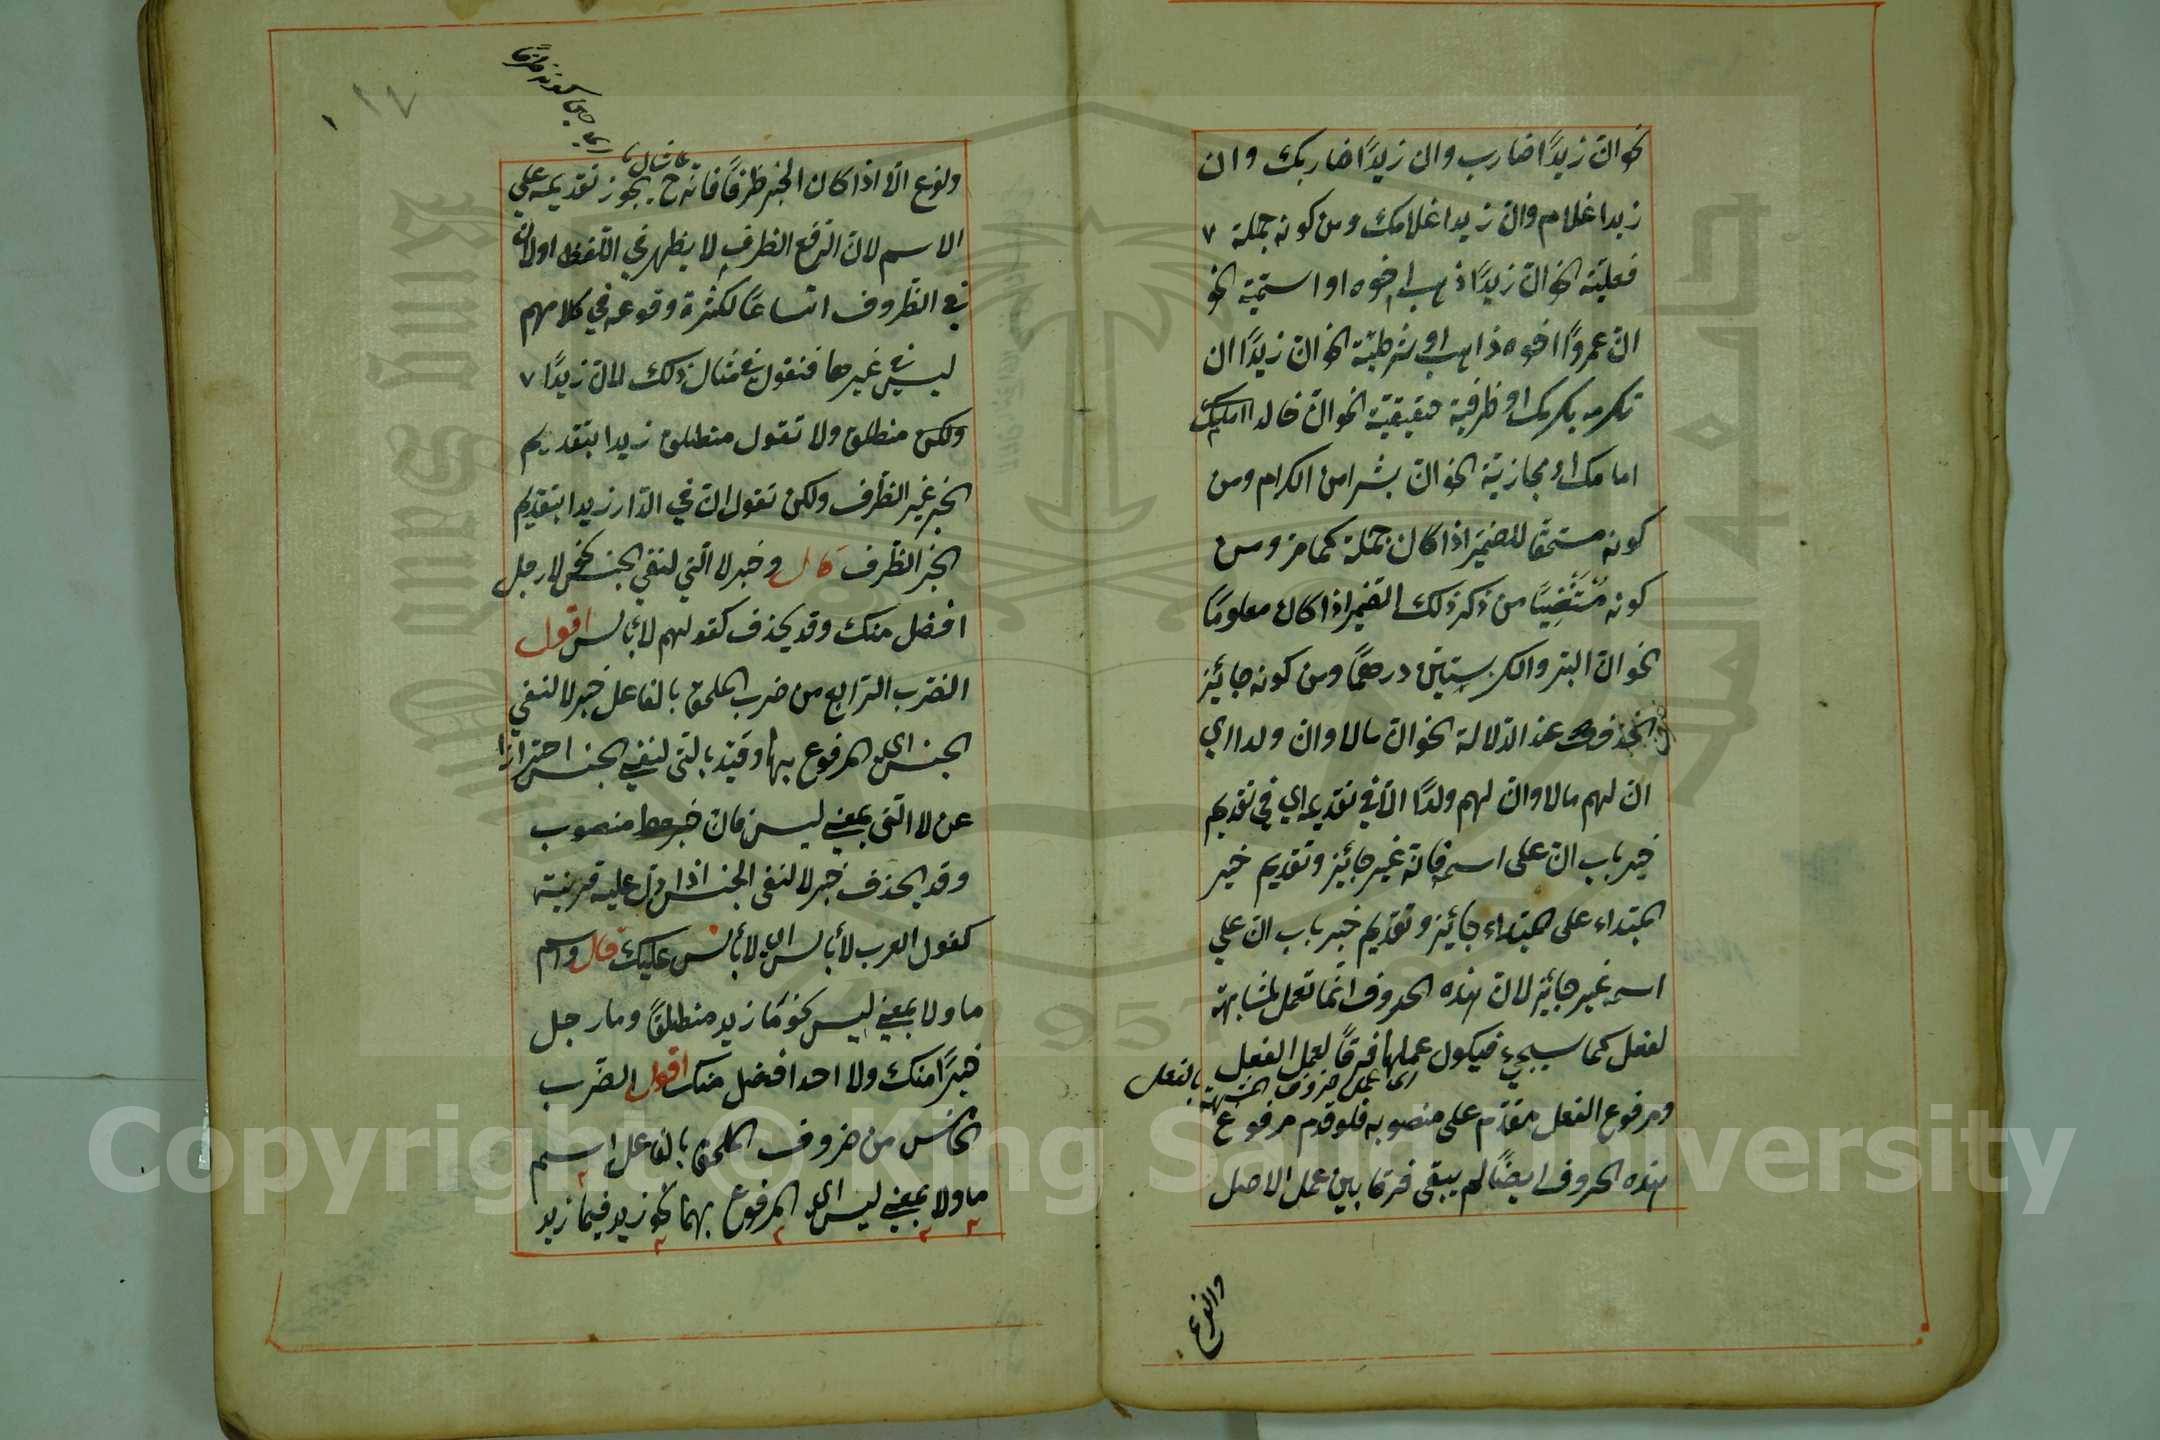 نحو ان زيدًا ضارب وان زيدًا ضاربك وان
زيدا غلام وان زيدا غلامك ومن كونه جملة
فعليّة نحو ان زيدًا ذهب اخوه او اسميّة نحو
ان عمروًا اخوه ذاهب او شرطيّة نحو ان زيدًا ان
تكرمه يكرمك او ظرفية حقيقيّة نحو ان خالدا امامك
امامك او مجازيّة نحو ان بشرا من الكرام ومن
كونه مستحقا للضمير اذا كان جملة كما مر ومن
كونه مستغنيًا من ذكر ذلك الضمير اذا كان معلومًا
نحو ان البر والكر بستين درهمًا ومن كونه جائز
الحذف عند الدلالة نحو ان مالا وان ولدا اي
ان لهم مالا وان لهم ولدًا الّا في تقديمه اي في تقديم
خبر باب ان على اسمه فانه غير جائز وتقديم خبر
المبتداء على المبتداء جائز وتقديم خبر باب ان علي
اسمه غير جائز لان هذه الحروف انّما تعمل لمشابهة
لفعل كما سيجيء فيكون عملها فرعًا لعمل الفعل
اي عمل حروف المشبهة بالفعل
ومرفوع الفعل مقدّم على منصوبه فلو قدم مرفوع
هذه الحروف ايضًا لم يبقى فرقا بين عمل الاصل
والفرع
١٢٧
كونه ظرفا
والفرع الّا اذا كان الخبر ظرفًا فانه ح يجوز تقديمه علي
الاسم لان الرفع الظرف لا يظهر في اللّفظ او لان
في الظّروف اتساعًا لكثرة وقوعه في كلامهم
ليس في غيرها فنقول في مثال ذلك لا ان زيدًا
ولكن منطلق ولا تقول منطلق زيدا بتقديم
الخبر غير الظّرف ولكن تقول ان في الدّار زيدا بتقديم
الخبر الظّرف قال وخبر لا الّتي لنفي الجنس نحو لا رجل
افضل منك وقد يحذف كقولهم لا بأس اقول
الضّرب الرّابع من ضرب الملحق بالفاعل خبر لا لنفي
الجنس اي المرفوع بها وقيّد بالتي لنفي الجنس احترازا
عن لا التي بمعني ليس فان خبرها منصوب
وقد يحذف خبر لا لنفي الجنس اذا دل عليه قرينة
كقول العرب لا بأس اي لا بأس عليك قال واسم
ما ولا بمعني ليس نحو ما زيد منطلقًا وما رجل
خيرًا منك ولا احد افضل منك اقول الضّرب
الخامس من ضروف الملحق بالفاعل اسم
ما ولا بمعني ليس اي المرفوع بهما نحو زيد فيما زيد